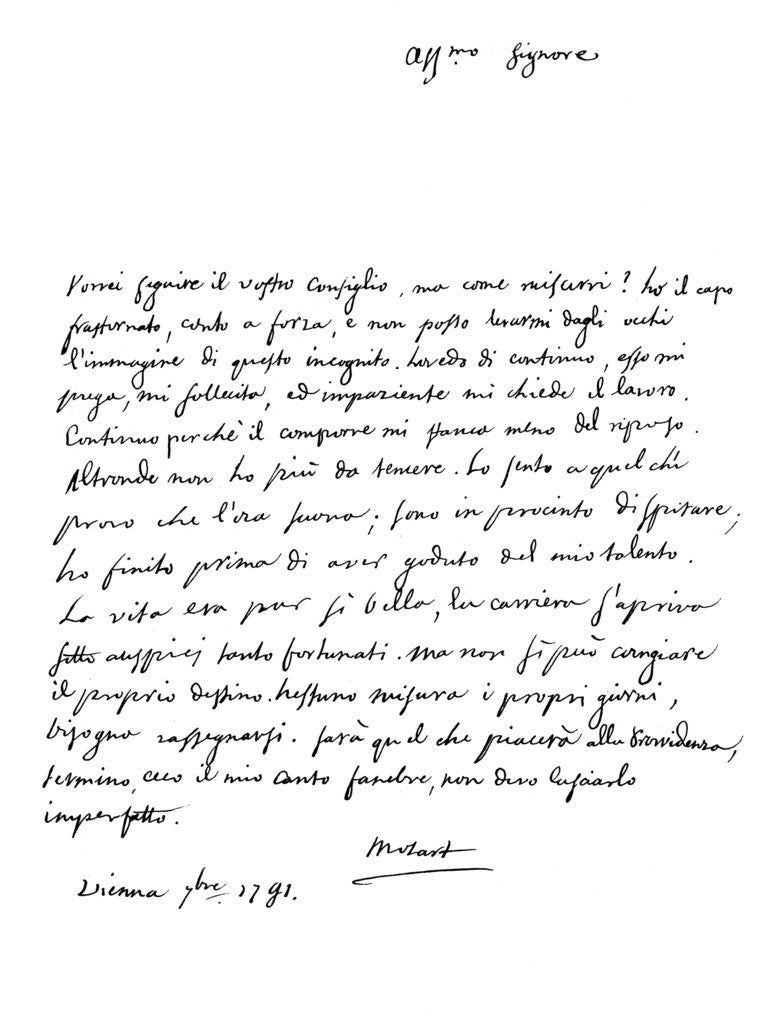 Aff.mo Signore
Vorrei seguire il vostro consiglio, ma come riuscirvi? ho il capo
frastornato, conto a forza, e non posso levarmi dagli occhi
l'immagine di questo incognito. Lo vedo di continuo, esso mi
prega, mi sollecita, ed impaziente mi chiede il lavoro.
Continuo perchè il comporre mi stanca meno del riposo.
Altronde non ho più da temere. Lo sento a quel che
provo che l'ora suona; sono in procinto di spirare;
ho finito prima di aver goduto del mio talento.
La vita era pur sì bella, la carriera s'apriva
sotto auspicj tanto fortunati. ma non si può cangiare
il proprio destino. Nessuno misura i propri giorni,
bisogna rassegnarsi. sarà quel che piacerà alla Provvidenza,
termino, ecco il mio canto funebre, non devo lasciarlo
imperfetto.
Mozart
Vienna 7bre 1791.